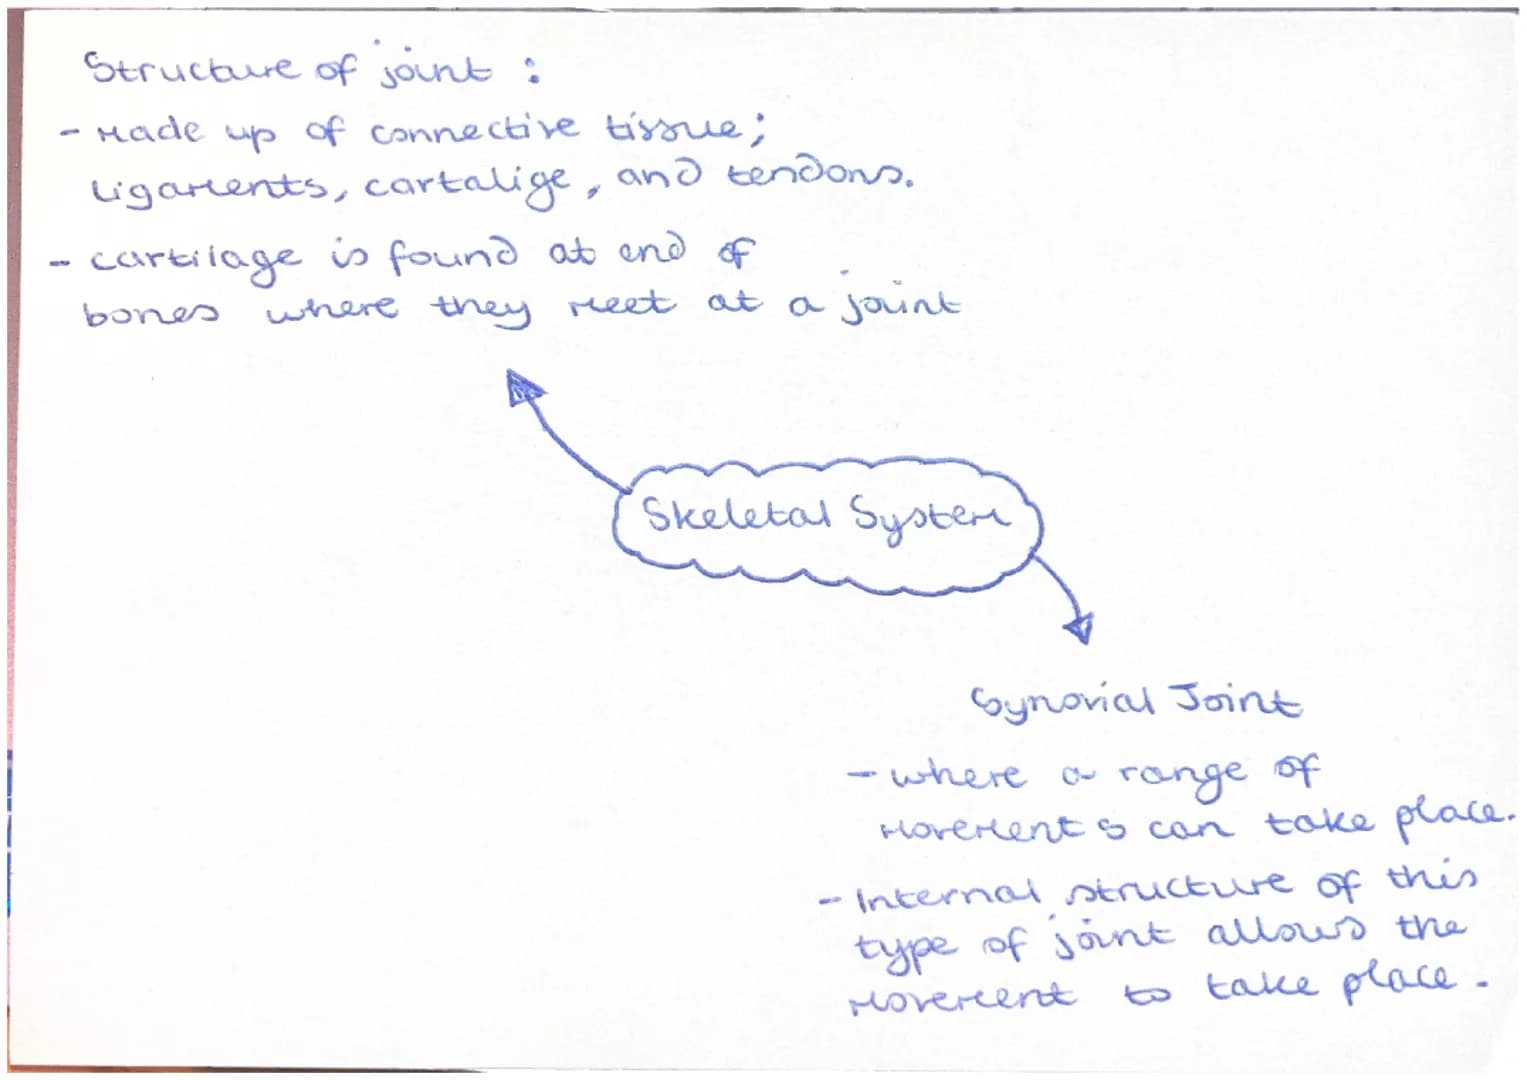 Structure of joint :
- Made up of connective tissue;
ligaments, cartalige, and tendons.
- cartilage is found at end of
bones where they meet at a joint
Skeletal System
Synovial Joint
- where a range of
movements can take place.
- Internal structure of this
type of joint allows the
movement to take place.